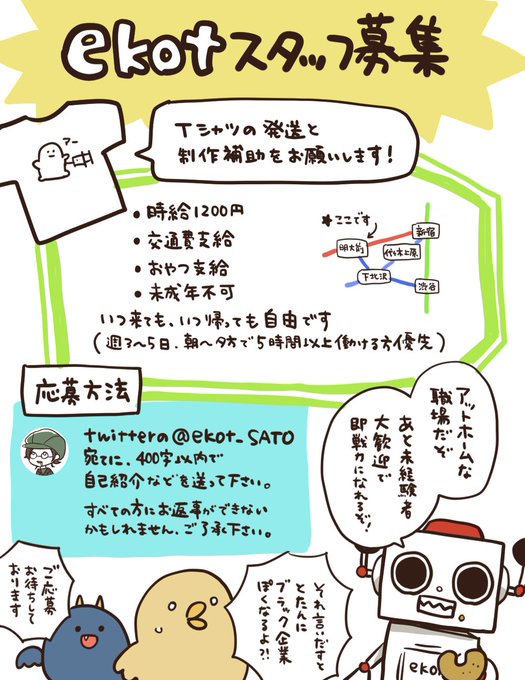 ekotスタッフ募集
アー
Tシャツの発送と
制作補助をお願いします!
• 時給1200円
• 交通費支給
• おやつ支給
• 未成年不可
★ここです
新宿
明大前
代々木上原
下北沢
渋谷
いつ来ても、いつ帰っても自由です
(週3〜5日、朝〜夕方で5時間以上働ける方優先)
応募方法
twitterの@ekot_SATO
宛てに、400字以内で
自己紹介などを送って下さい。
すべての方にお返事ができない
かもしれません、ご了承下さい。
アットホームな
職場だぞ
あと未経験者
大歓迎で
即戦力になれるぞ!
それ言いだすと
とたんに
ブラック企業
ぽくなるよ?!
ご応募
お待ちして
おります
eko